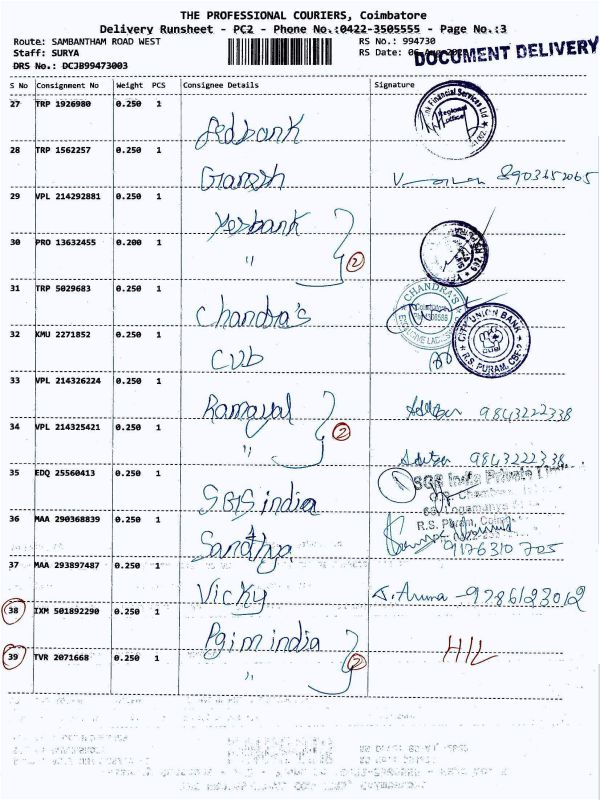 THE PROFESSIONAL COURIERS, Coimbatore
Delivery Runsheet - PC2 - Phone No.:0422-3505555 - Page No.:3
Route: SAMBANTHAM ROAD WEST RS No.: 994730
Staff: SURYA RS Date: 06
DOCUMENT DELIVERY
DRS No.: DCJB99473003
S No Consignment No Weight PCS Consignee Details Signature
27 TRP 1926980 0.250 1
Fedbank
Financial Services Ltd
Regional
office
28 TRP 1562257 0.250 1
Ganesh 8903652065
29 VPL 214292881 0.250 1
Yesbank
30 PRO 13632455 0.200 1
" 2
31 TRP 5029683 0.250 1
Chandra's
CHANDRA'S
32 KMU 2271852 0.250 1
CUB
CITY UNION BANK
R.S. PURAM, CBE
33 VPL 214326224 0.250 1
Ramayal 9843222338
34 VPL 214325421 0.250 1
" 2 9843222338
35 EDQ 25560413 0.250 1
SGS india
SGS India Private
R.S. Puram,
36 MAA 290368839 0.250 1
Sandhya 9176310705
37 MAA 293897487 0.250 1
Vicky J. Aruna - 9786123012
38 IXM 501892290 0.250 1
Pgim india H/L
39 TVR 2071668 0.250 1
" 2